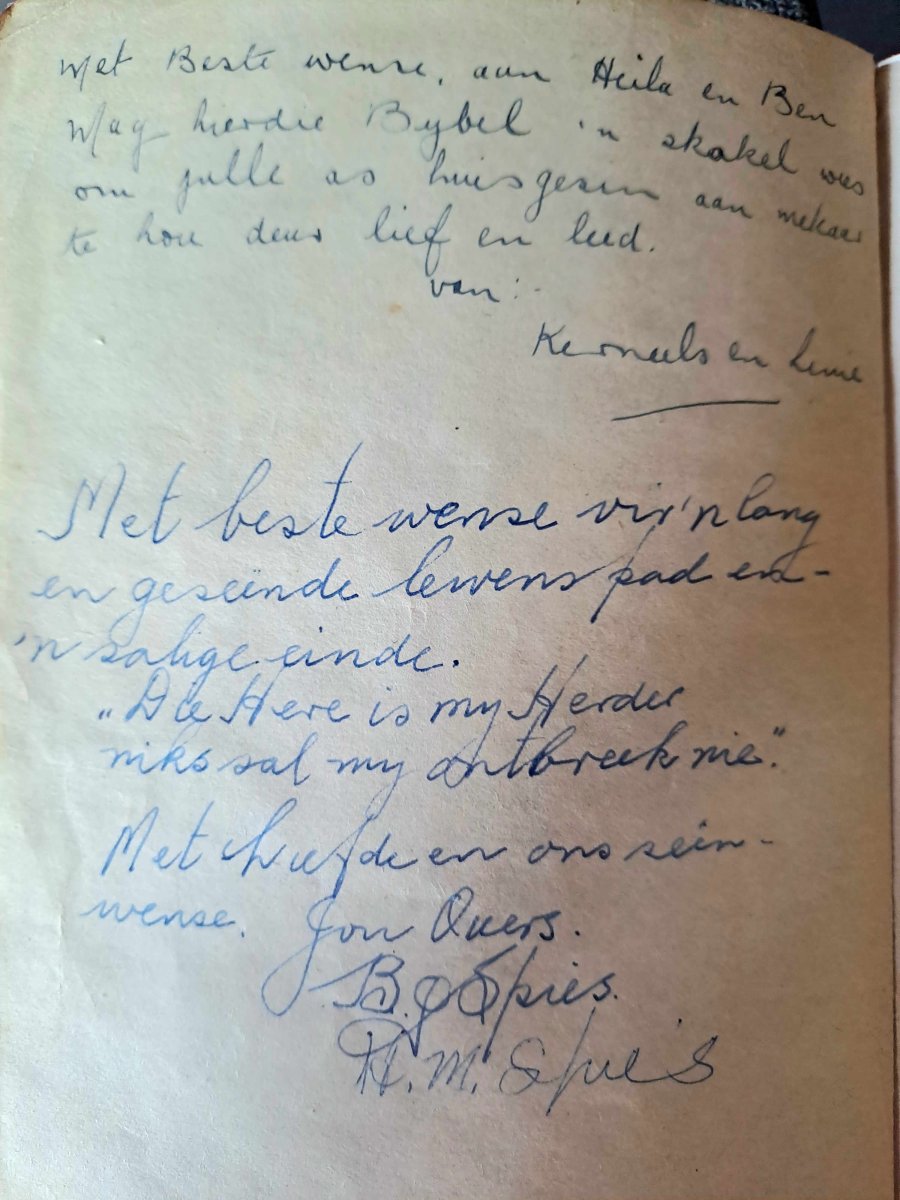 Met Beste wense, aan Heila en Ben
Mag hierdie Bybel 'n skakel wees
om julle as huisgesin aan mekaar
te hou deur lief en leed.
van:-
Kerneels en Lenie
Met beste wense vir 'n lang
en geseënde lewens pad en-
'n salige einde.
„Die Here is my Herder
niks sal my ontbreek nie".
Met Liefde en ons seën-
wense. Jou Ouers.
B. J Spies.
H. M. Spies